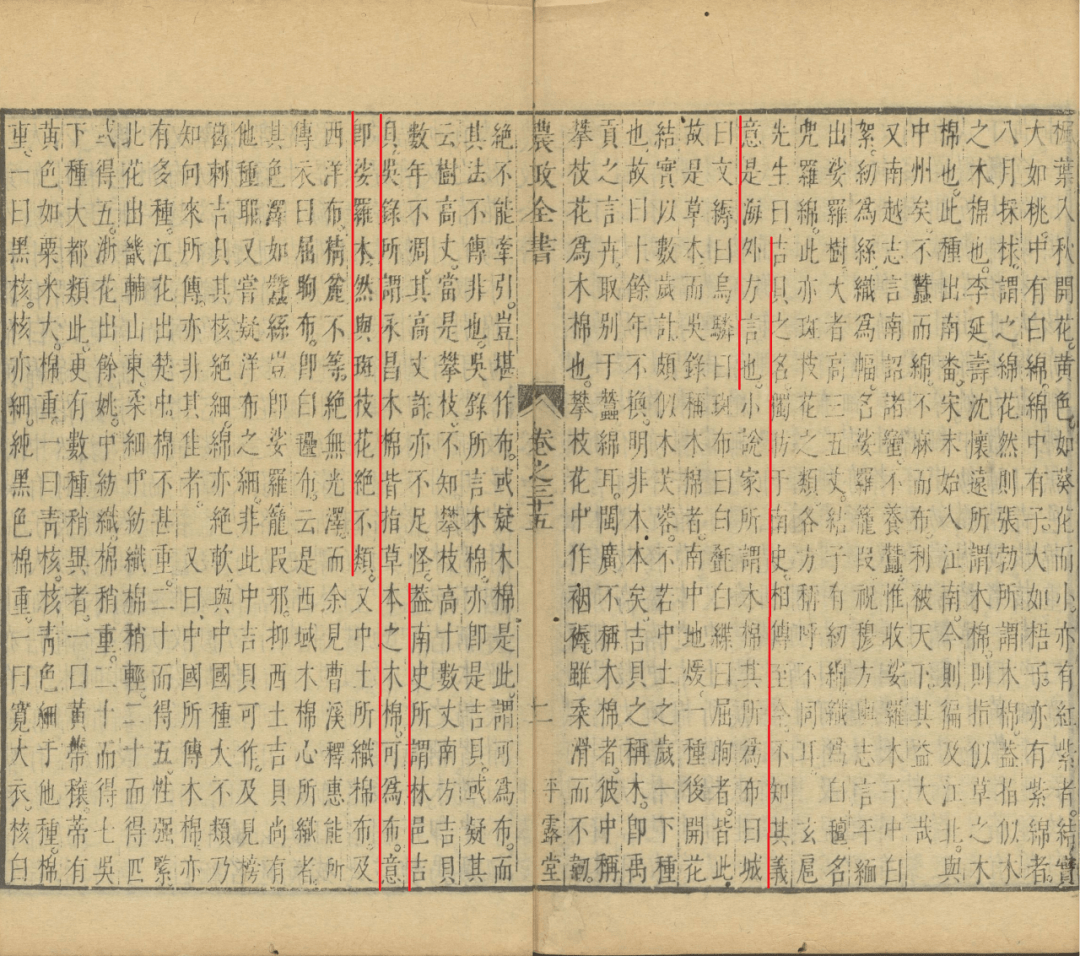 楓葉入秋開花黃色如葵花而小亦有紅紫者結實
大如桃中有白綿綿中有子大如梧子亦有紫綿者。
八月採謂之綿花然則張勃所謂木棉蓋指似木
之木棉也。李延壽沈懷遠所謂木棉則指似草之木
棉也。此種出南番宋末始入江南。今則徧及江北與
中州矣。不蠶而綿不麻而布利被天下其益大哉
又南越志言南詔諸蠻不養蠶惟收娑羅木子中白
絮紉為絲織為幅名娑羅籠段祝穆方輿志言平緬
出娑羅樹大者高三五丈結子有紉綿織為白氊名
兜羅綿此亦斑枝花之類各方稱呼不同耳 玄扈
先生曰吉貝之名獨昉于南史相傳至今不知其義
意是海外方言也。小說家所謂木棉其所為布曰城
曰文縟曰烏驎曰斑布曰白㲲曰白緤曰屈眴者皆此
故是草本而吳錄稱木棉者南中地煖一種後開花
結實以數歲計頗似木芙蓉不若中土之歲一下種
也。故曰十餘年不換明非木本矣。吉貝之稱木即禹
貢之言卉取別于蠶綿耳。閩廣不稱木棉者彼中稱
攀枝花為木棉也。攀枝花中作裀褥雖柔滑而不韌
農政全書 卷之三十五 二 平露堂
絕不能牽引。豈堪作布。或疑木棉是此。謂可為布。而
其法不傳非也。吳錄所言木棉亦即是吉貝。或疑其
云樹高丈當是攀枝。不知攀枝高十數丈南方吉貝
數年不凋其高丈許亦不足怪。蓋南史所謂林邑吉
貝吳錄所謂永昌木棉皆指草本之木棉。可為布。意
即娑羅木。然與斑枝花絕不類。又中土所織棉布及
西洋布。精麤不等。絕無光澤而余見曹溪釋惠能所
傳衣曰屈眴布。即白㲲布。云是西域木棉心所織者。
其色澤如蠶絲豈即娑羅籠段邪。抑西土吉貝尚有
他種耶。又嘗疑洋布之細非此中吉貝可作。及見榜
葛剌吉貝其核絕細綿亦絕軟。與中國種大不類。乃
知向來所傳亦非其佳者。 又曰中國所傳木棉亦
有多種。江花出楚中。棉不甚重。二十而得五。性强緊
北花出畿輔山東。柔細中紡織。棉稍輕。二十而得四
或得五。浙花出餘姚。中紡織。棉稍重。二十而得七。吳
下種大都類此。更有數種稍異者。一曰黃蒂穰。蒂有
黃色如粟米大。棉重。一曰青核。核青色細于他種。棉
重。一曰黑核。核亦細。純黑色棉重。一曰寬大衣。核白